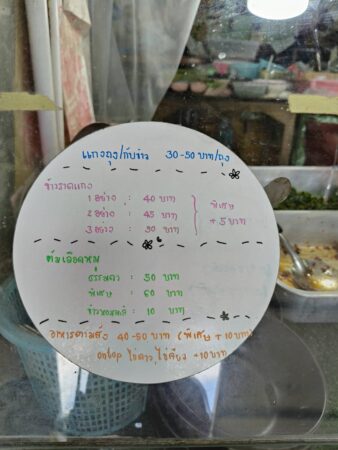 แกงถุง/กับข้าว 30-50 บาท/ถุง
ข้าวราดแกง
1 อย่าง : 40 บาท
2 อย่าง : 45 บาท
3 อย่าง : 50 บาท
พิเศษ
+ 5 บาท
ต้มเลือดหมู
ธรรมดา : 50 บาท
พิเศษ : 60 บาท
ข้าวหอมมะลิ : 10 บาท
อาหารตามสั่ง 40-50 บาท (พิเศษ + 10 บาท)
ontop ไข่ดาว, ไข่เจียว +10 บาท